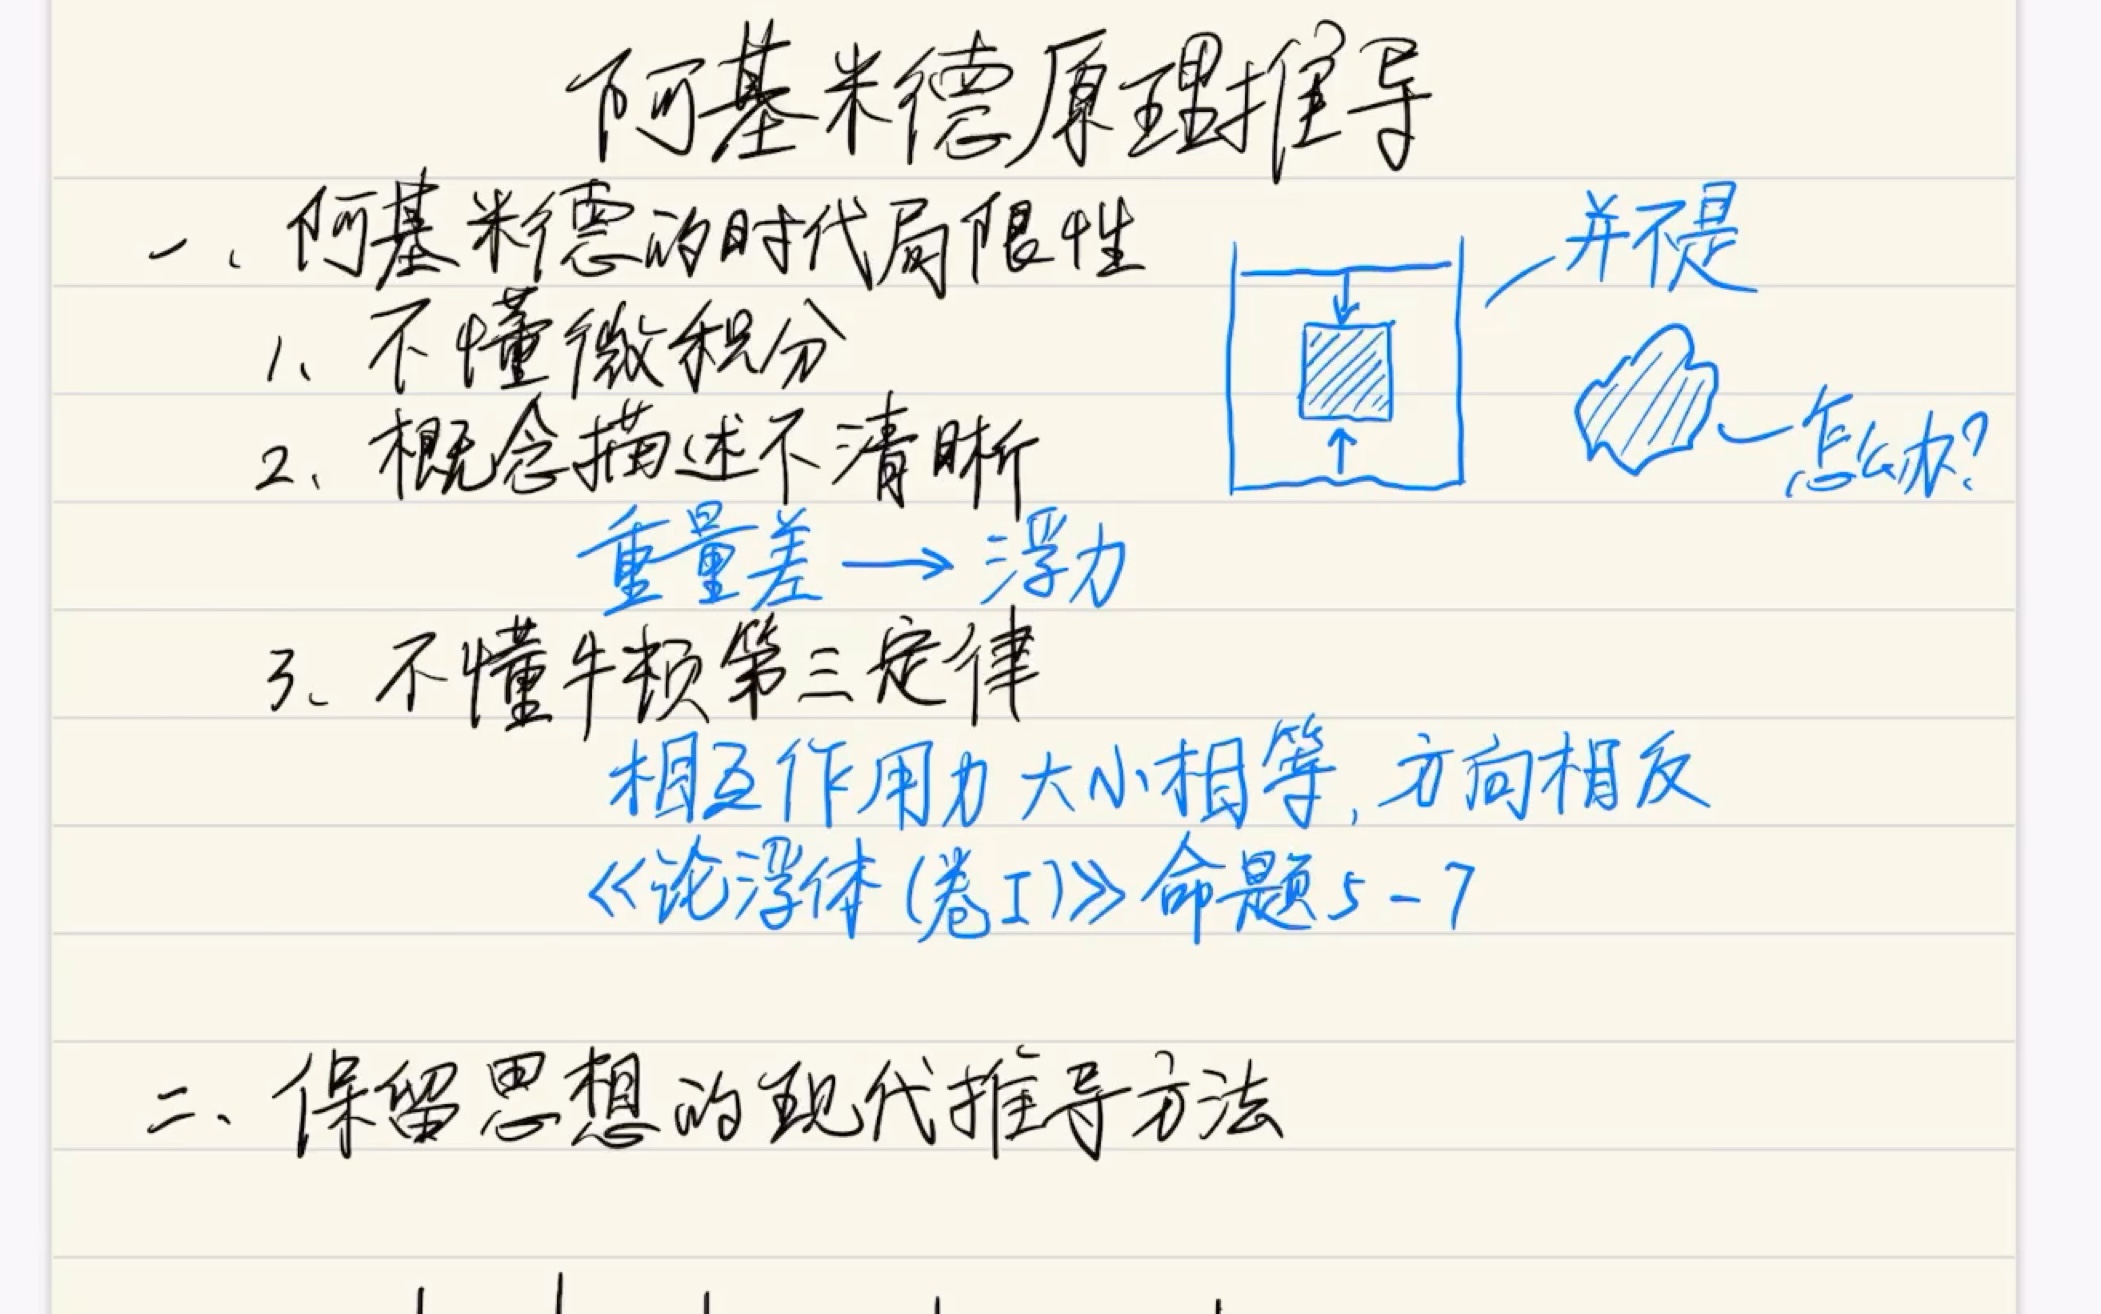 阿基米德原理推导
一、阿基米德的时代局限性
并不是
1、不懂微积分
2、概念描述不清晰
怎么办?
重量差→浮力
3、不懂牛顿第三定律
相互作用力大小相等,方向相反
《论浮体(卷I)》命题5-7
二、保留思想的现代推导方法